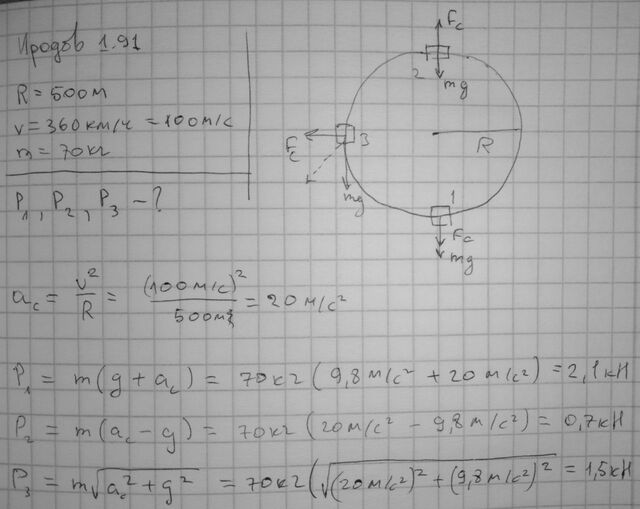 Иродов 1.91
R = 500м
v = 360км/ч = 100м/с
m = 70кг
P₁, P₂, P₃ - ?
Fc
2
mg
3
Fc
R
mg
1
Fc
mg
a_c = v²/R = (100м/с)²/500м = 20м/с²
P₁ = m(g + a_c) = 70кг(9,8м/с² + 20м/с²) = 2,1кН
P₂ = m(a_c - g) = 70кг(20м/с² - 9,8м/с²) = 0,7кН
P₃ = m√(a_c² + g²) = 70кг(√((20м/с²)² + (9,8м/с²)²) = 1,5кН